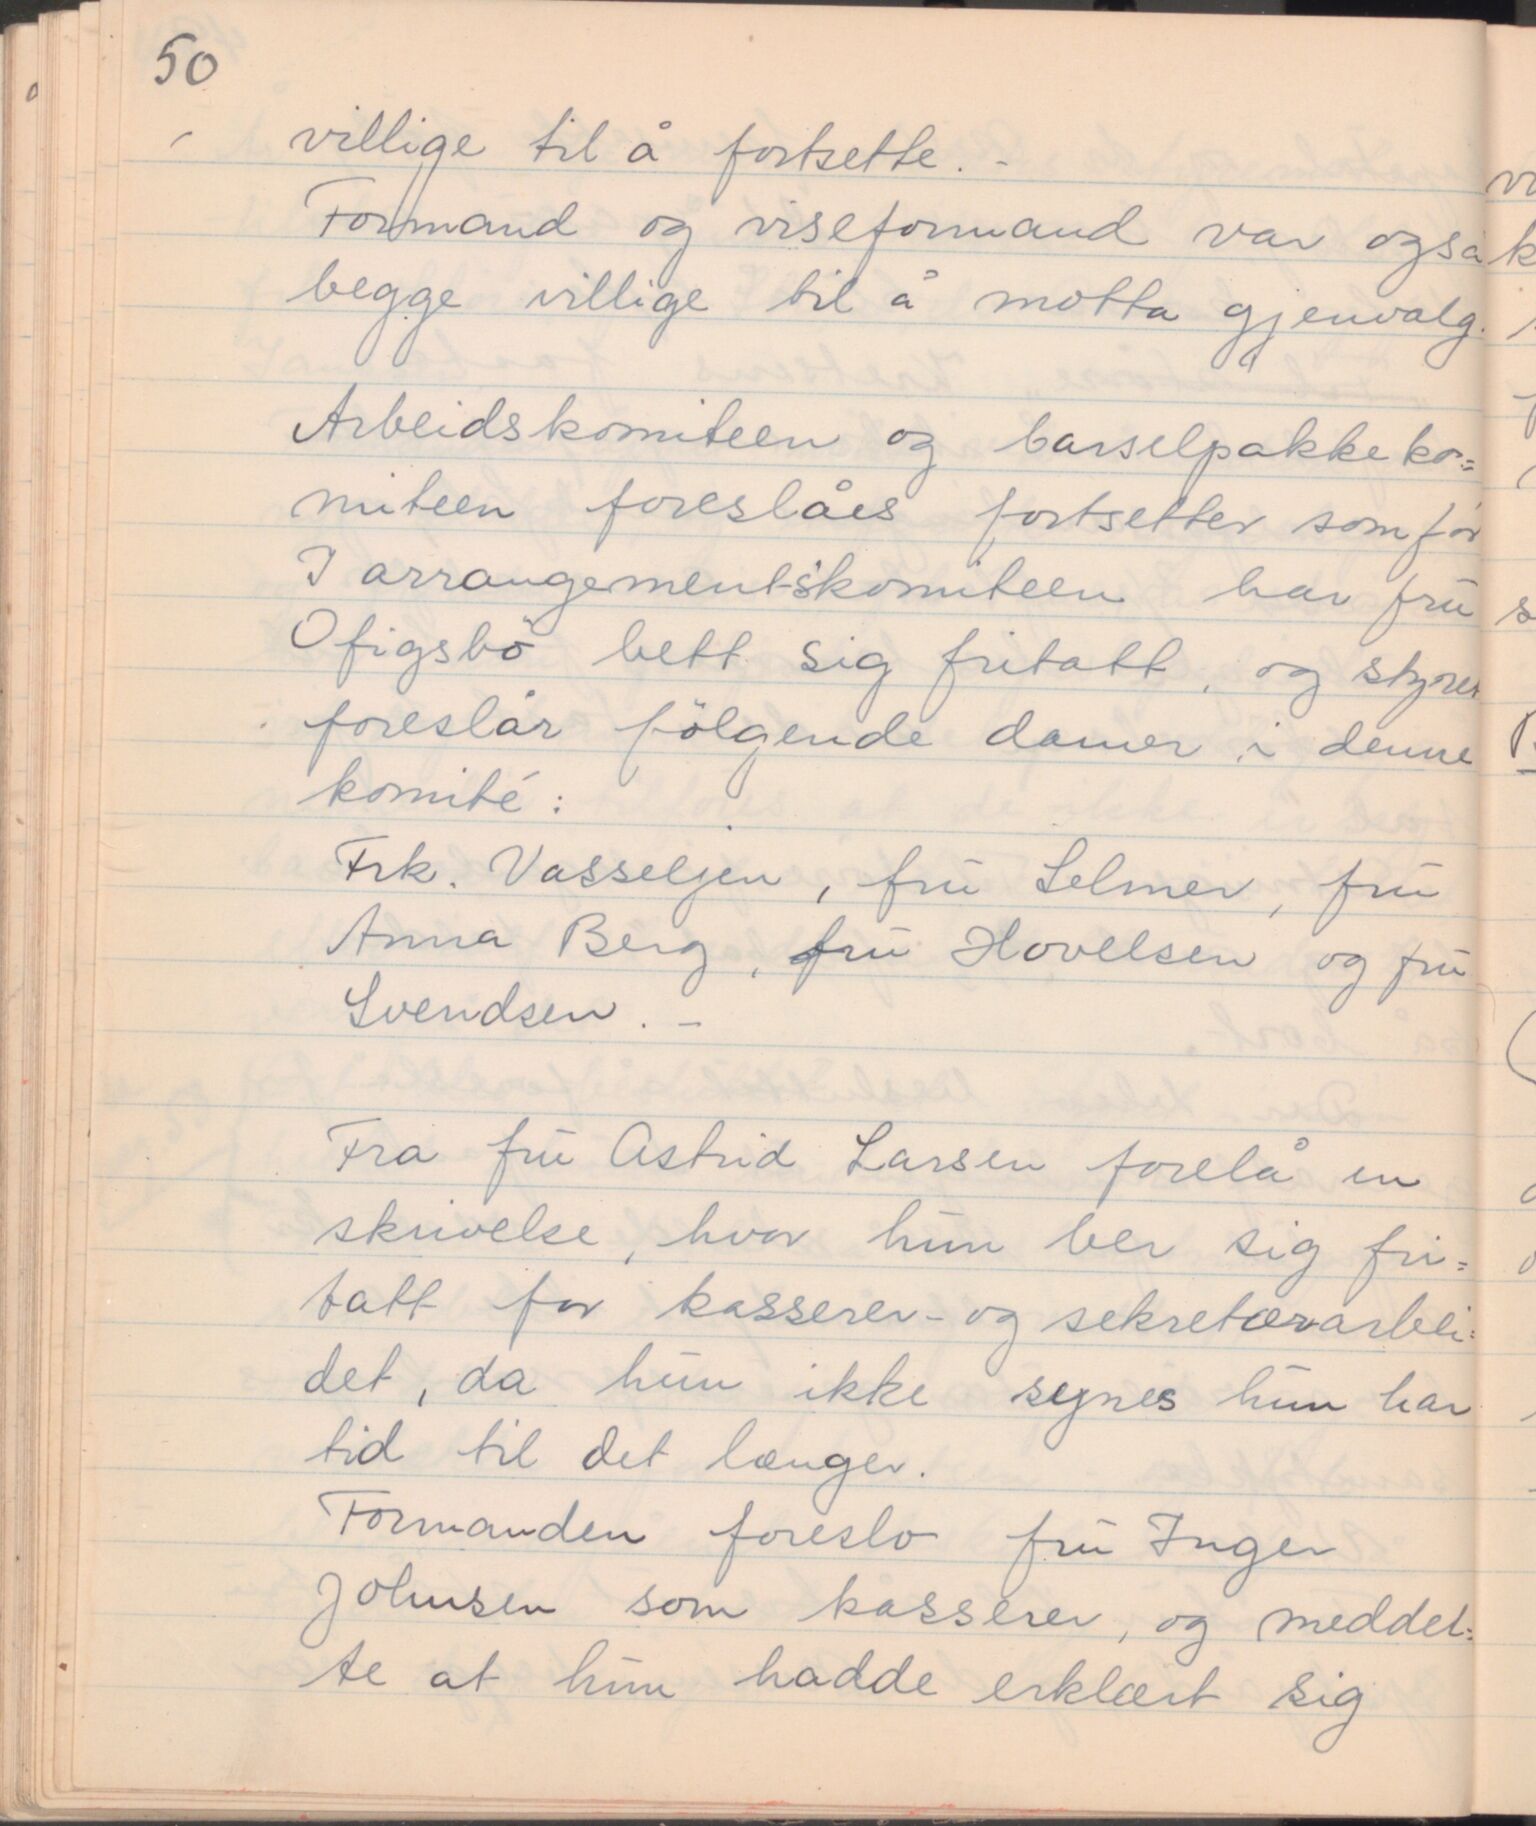 50
villige til å fortsette. -
Formand og viseformand var også
begge villige til å motta gjenvalg.
Arbeidskomiteen og barselpakkeko=
miteen foreslåes fortsetter som før
I arrangementskomiteen har fru
Ofigsbö bett sig fritatt, og styret
foreslår fölgende damer i denne
komité:
Frk. Vasseljen, fru Selmer, fru
Anna Berg, fru Hovelsen og fru
Svendsen. -
Fra fru Astrid Larsen forelå en
skrivelse, hvor hun ber sig fri=
tatt for kasserer- og sekretærarbei=
det, da hun ikke synes hun har
tid til det længer.
Formanden foreslo fru Inger
Johnsen som kasserer, og meddel=
te at hun hadde erklært sig